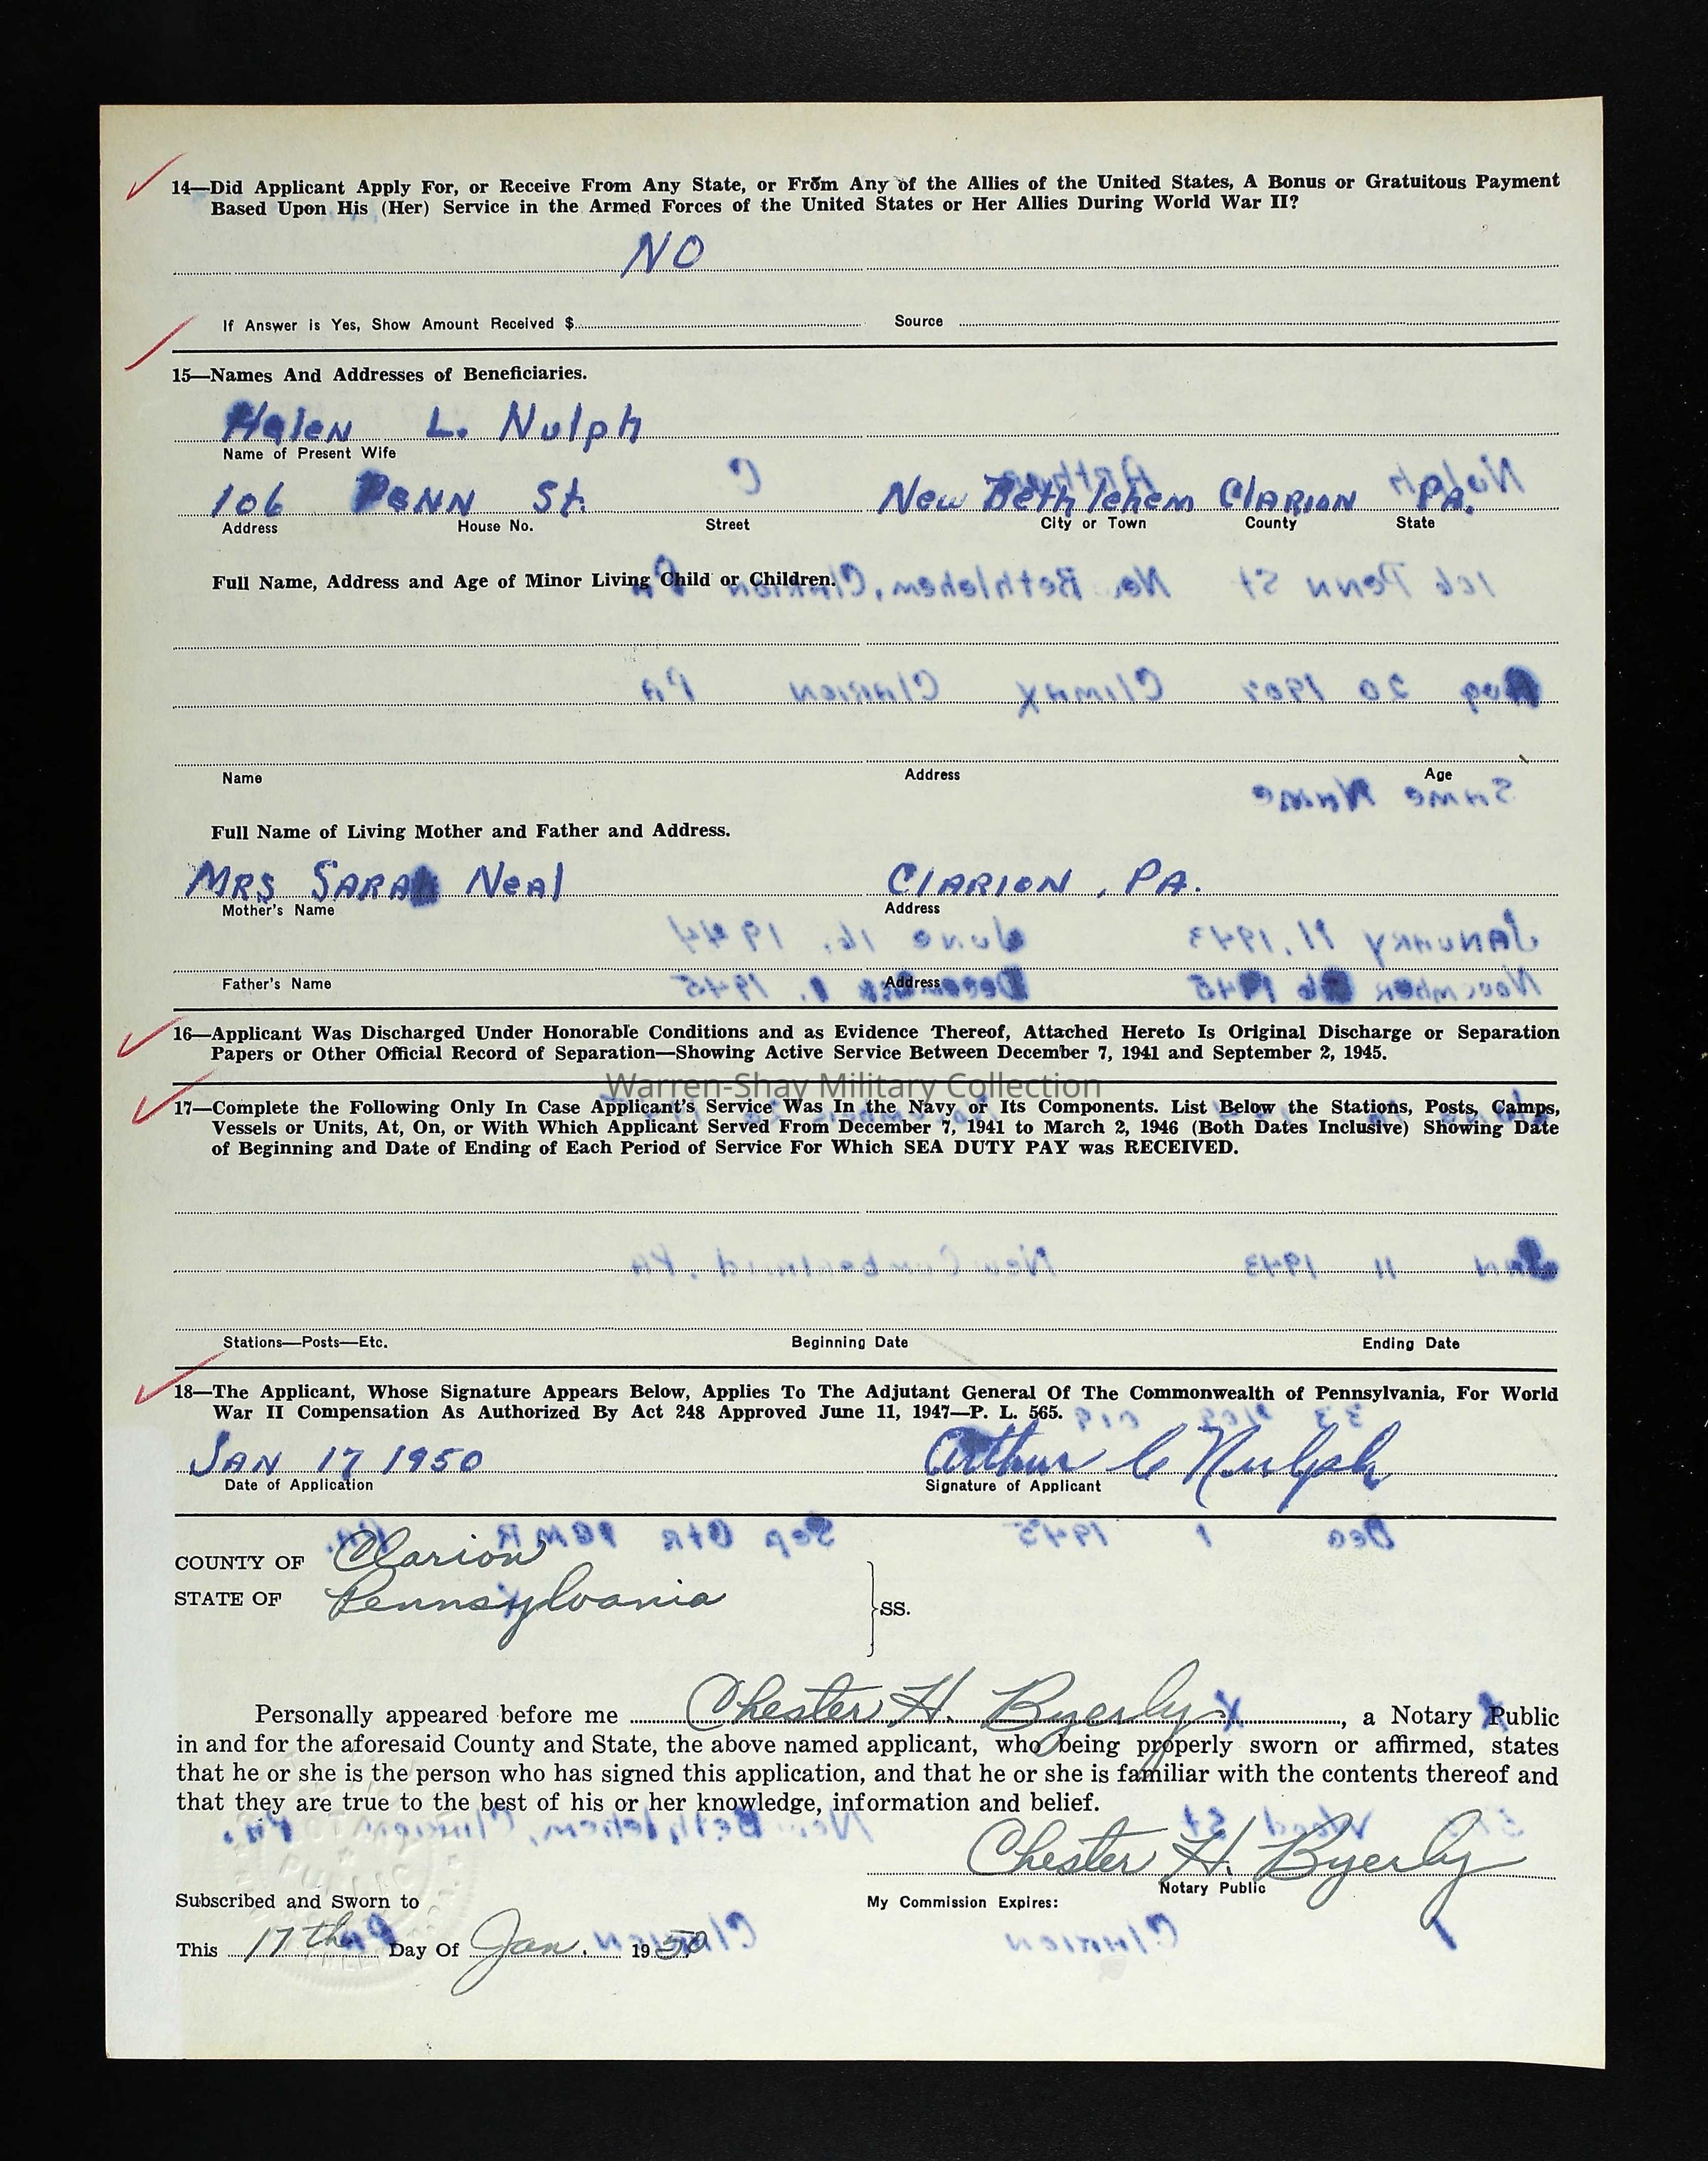 14—Did Applicant Apply For, or Receive From Any State, or From Any of the Allies of the United States, A Bonus or Gratuitous Payment
Based Upon His (Her) Service in the Armed Forces of the United States or Her Allies During World War II?
NO
If Answer is Yes, Show Amount Received $ Source
15—Names And Addresses of Beneficiaries.
Helen L. Nulph
Name of Present Wife
106 PENN St. New Bethlehem CLARION PA.
Address House No. Street City or Town County State
Full Name, Address and Age of Minor Living Child or Children.
Name Address Age
Full Name of Living Mother and Father and Address.
MRS SARAh Neal CLARION, PA.
Mother's Name Address
Father's Name Address
16—Applicant Was Discharged Under Honorable Conditions and as Evidence Thereof, Attached Hereto Is Original Discharge or Separation
Papers or Other Official Record of Separation—Showing Active Service Between December 7, 1941 and September 2, 1945.
Warren-Shay Military Collection
17—Complete the Following Only In Case Applicant's Service Was In the Navy or Its Components. List Below the Stations, Posts, Camps,
Vessels or Units, At, On, or With Which Applicant Served From December 7, 1941 to March 2, 1946 (Both Dates Inclusive) Showing Date
of Beginning and Date of Ending of Each Period of Service For Which SEA DUTY PAY was RECEIVED.
Stations—Posts—Etc. Beginning Date Ending Date
18—The Applicant, Whose Signature Appears Below, Applies To The Adjutant General Of The Commonwealth of Pennsylvania, For World
War II Compensation As Authorized By Act 248 Approved June 11, 1947—P. L. 565.
JAN 17 1950 Arthur C Nulph
Date of Application Signature of Applicant
COUNTY OF Clarion
STATE OF Pennsylvania
SS.
Personally appeared before me Chester H. Byerly, a Notary Public
in and for the aforesaid County and State, the above named applicant, who being properly sworn or affirmed, states
that he or she is the person who has signed this application, and that he or she is familiar with the contents thereof and
that they are true to the best of his or her knowledge, information and belief.
Chester H. Byerly
Notary Public
Subscribed and Sworn to My Commission Expires:
This 17th Day Of Jan. 1950